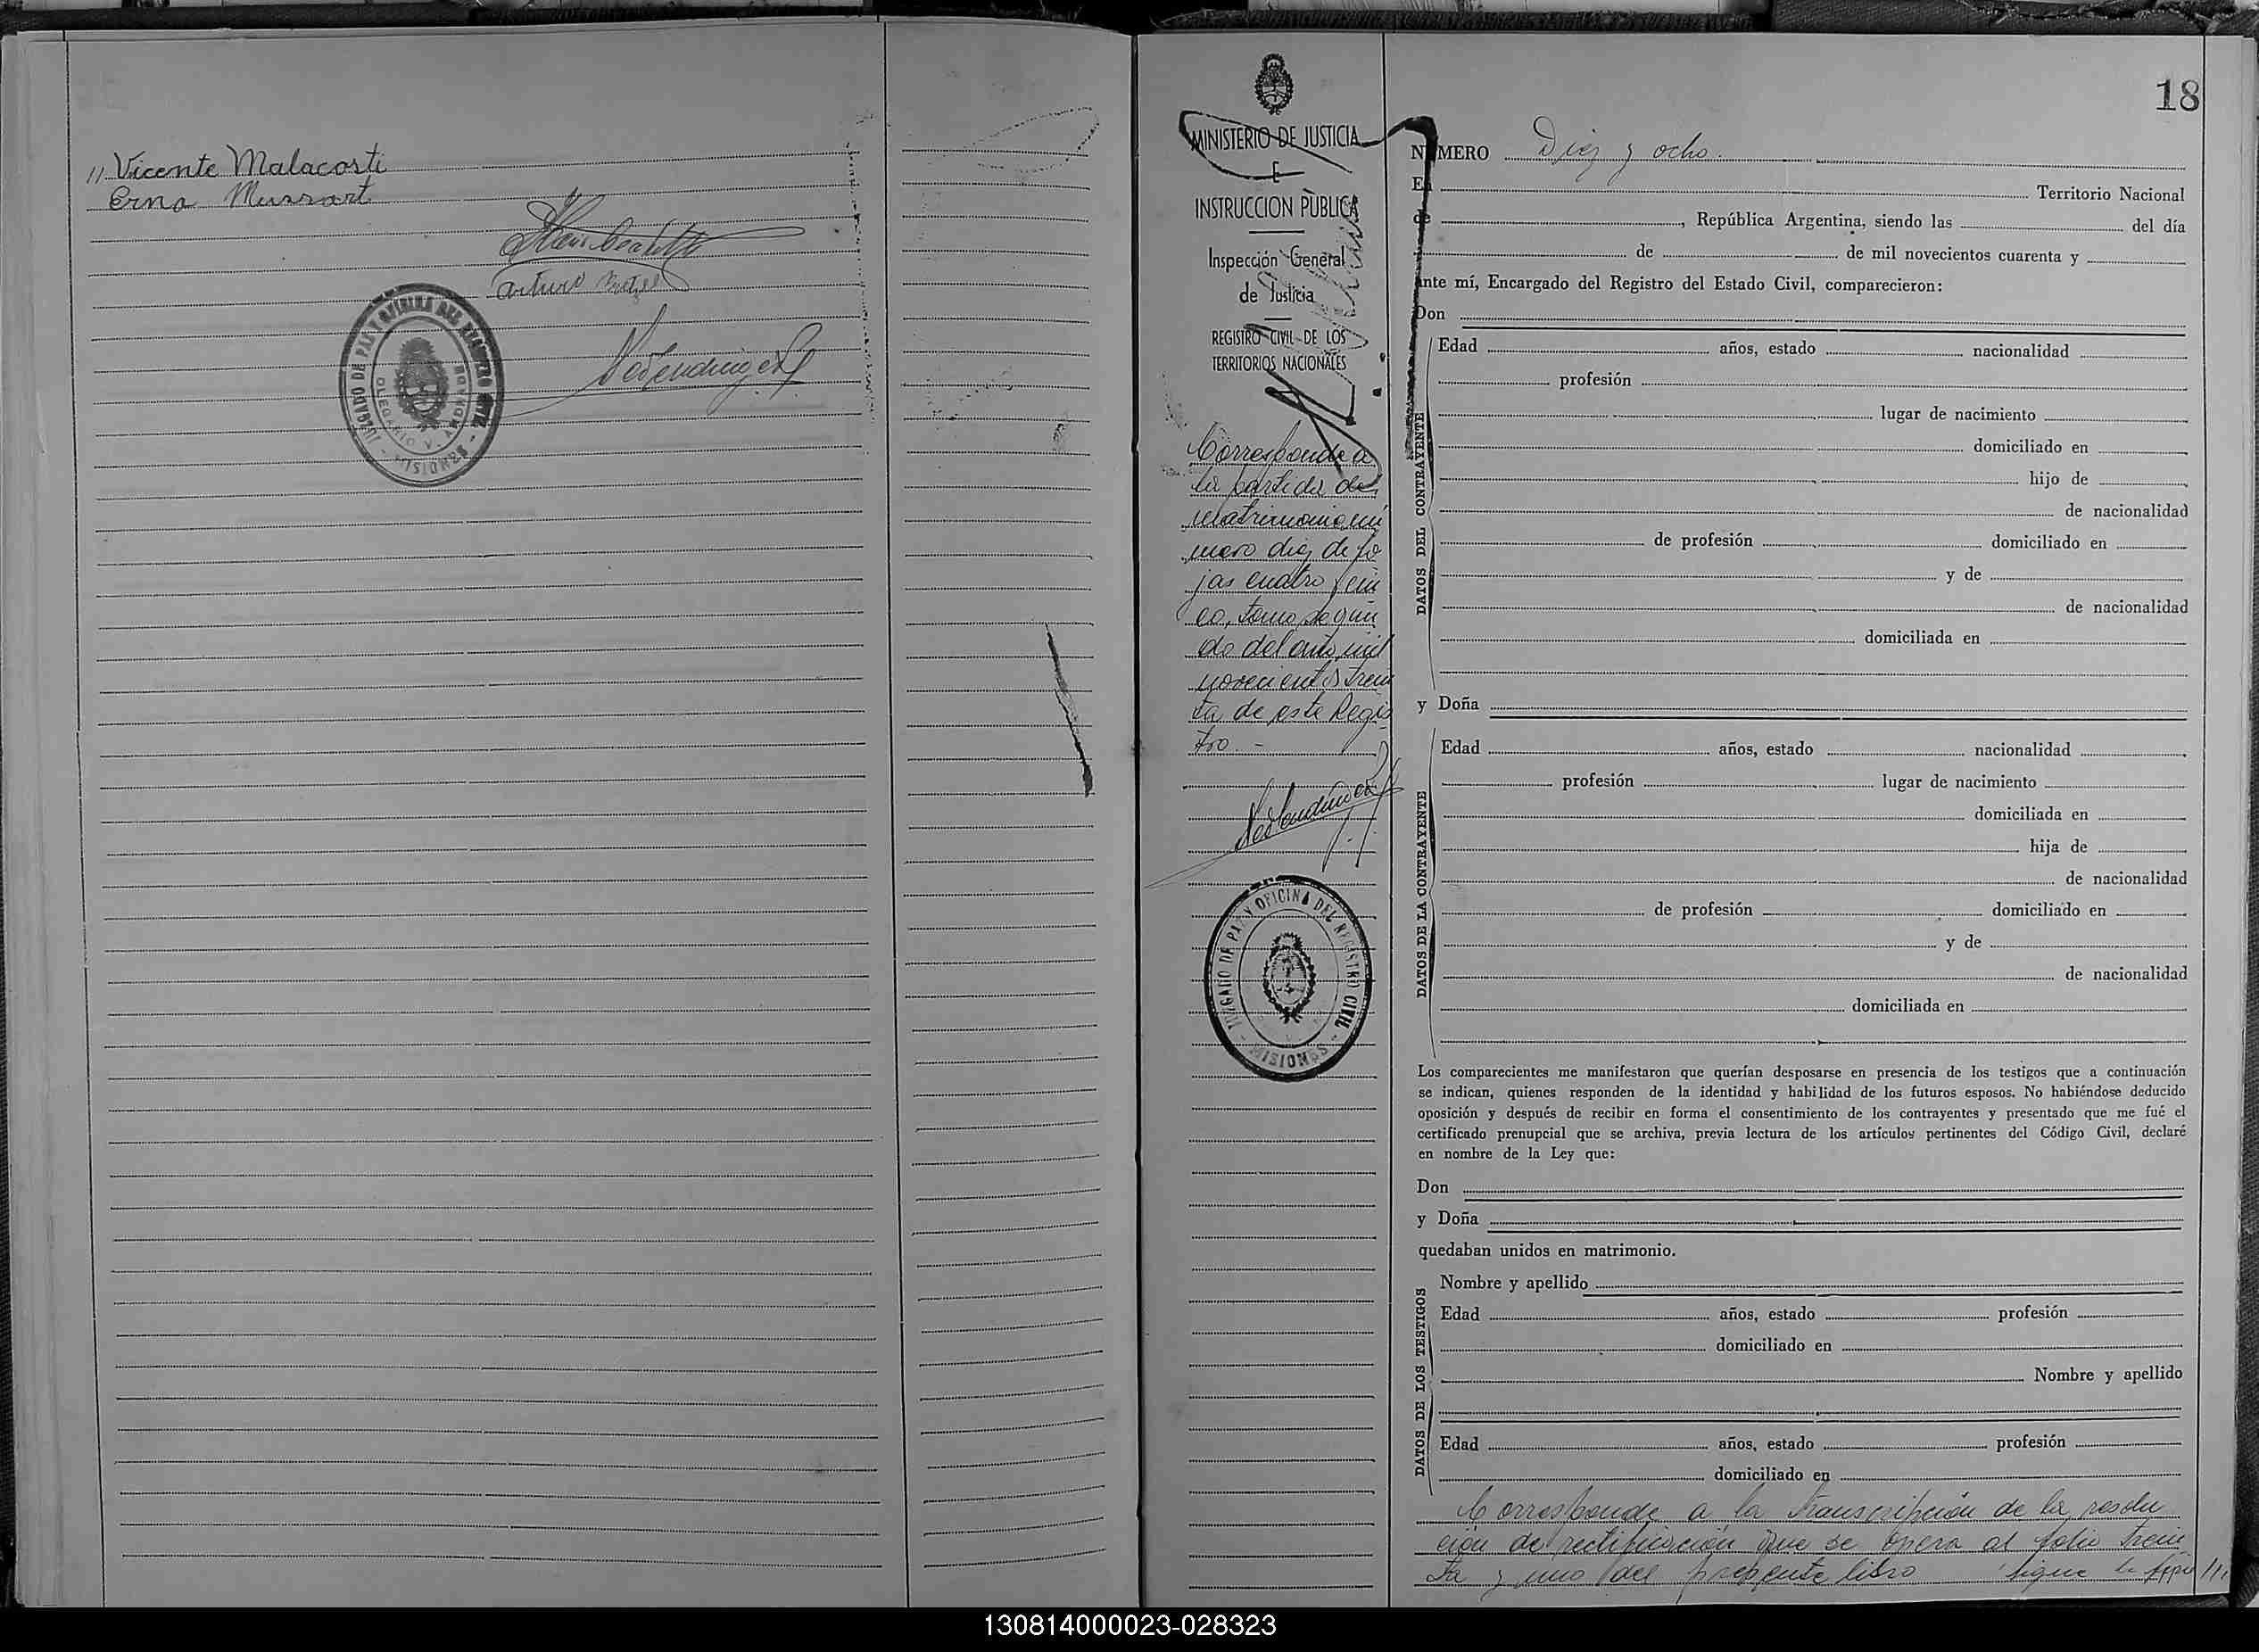 // Vicente Malacosti
Erna Mussart
Arturo
JUZGADO DE PAZ Y OFICINA DEL REGISTRO CIVIL - MISIONES
OLEGARIO V. ANDRADE
MINISTERIO DE JUSTICIA
E
INSTRUCCION PÚBLICA
Inspección General
de Justicia
REGISTRO CIVIL DE LOS
TERRITORIOS NACIONALES
Corresponde a
la partida de
matrimonio nú
mero diez de fo
jas cuatro y cin
co, tomo segun
do del año mil
novecientos trein
ta de este Regis
tro. -
JUZGADO DE PAZ Y OFICINA DEL REGISTRO CIVIL - MISIONES
18
NUMERO Diez y ocho.
En Territorio Nacional
de , República Argentina, siendo las del día
de de mil novecientos cuarenta y
ante mí, Encargado del Registro del Estado Civil, comparecieron:
Don
DATOS DEL CONTRAYENTE
Edad años, estado nacionalidad
profesión
lugar de nacimiento
domiciliado en
hijo de
de nacionalidad
de profesión domiciliado en
y de
de nacionalidad
domiciliada en
y Doña
DATOS DE LA CONTRAYENTE
Edad años, estado nacionalidad
profesión lugar de nacimiento
domiciliada en
hija de
de nacionalidad
de profesión domiciliado en
y de
de nacionalidad
domiciliada en
Los comparecientes me manifestaron que querían desposarse en presencia de los testigos que a continuación
se indican, quienes responden de la identidad y habilidad de los futuros esposos. No habiéndose deducido
oposición y después de recibir en forma el consentimiento de los contrayentes y presentado que me fué el
certificado prenupcial que se archiva, previa lectura de los artículos pertinentes del Código Civil, declaré
en nombre de la Ley que:
Don
y Doña
quedaban unidos en matrimonio.
DATOS DE LOS TESTIGOS
Nombre y apellido
Edad años, estado profesión
domiciliado en
Nombre y apellido
Edad años, estado profesión
domiciliado en
Corresponde a la transcripción de la resolu
ción de rectificación que se opera al folio trein
ta y uno del presente libro sigue la ///
130814000023-028323